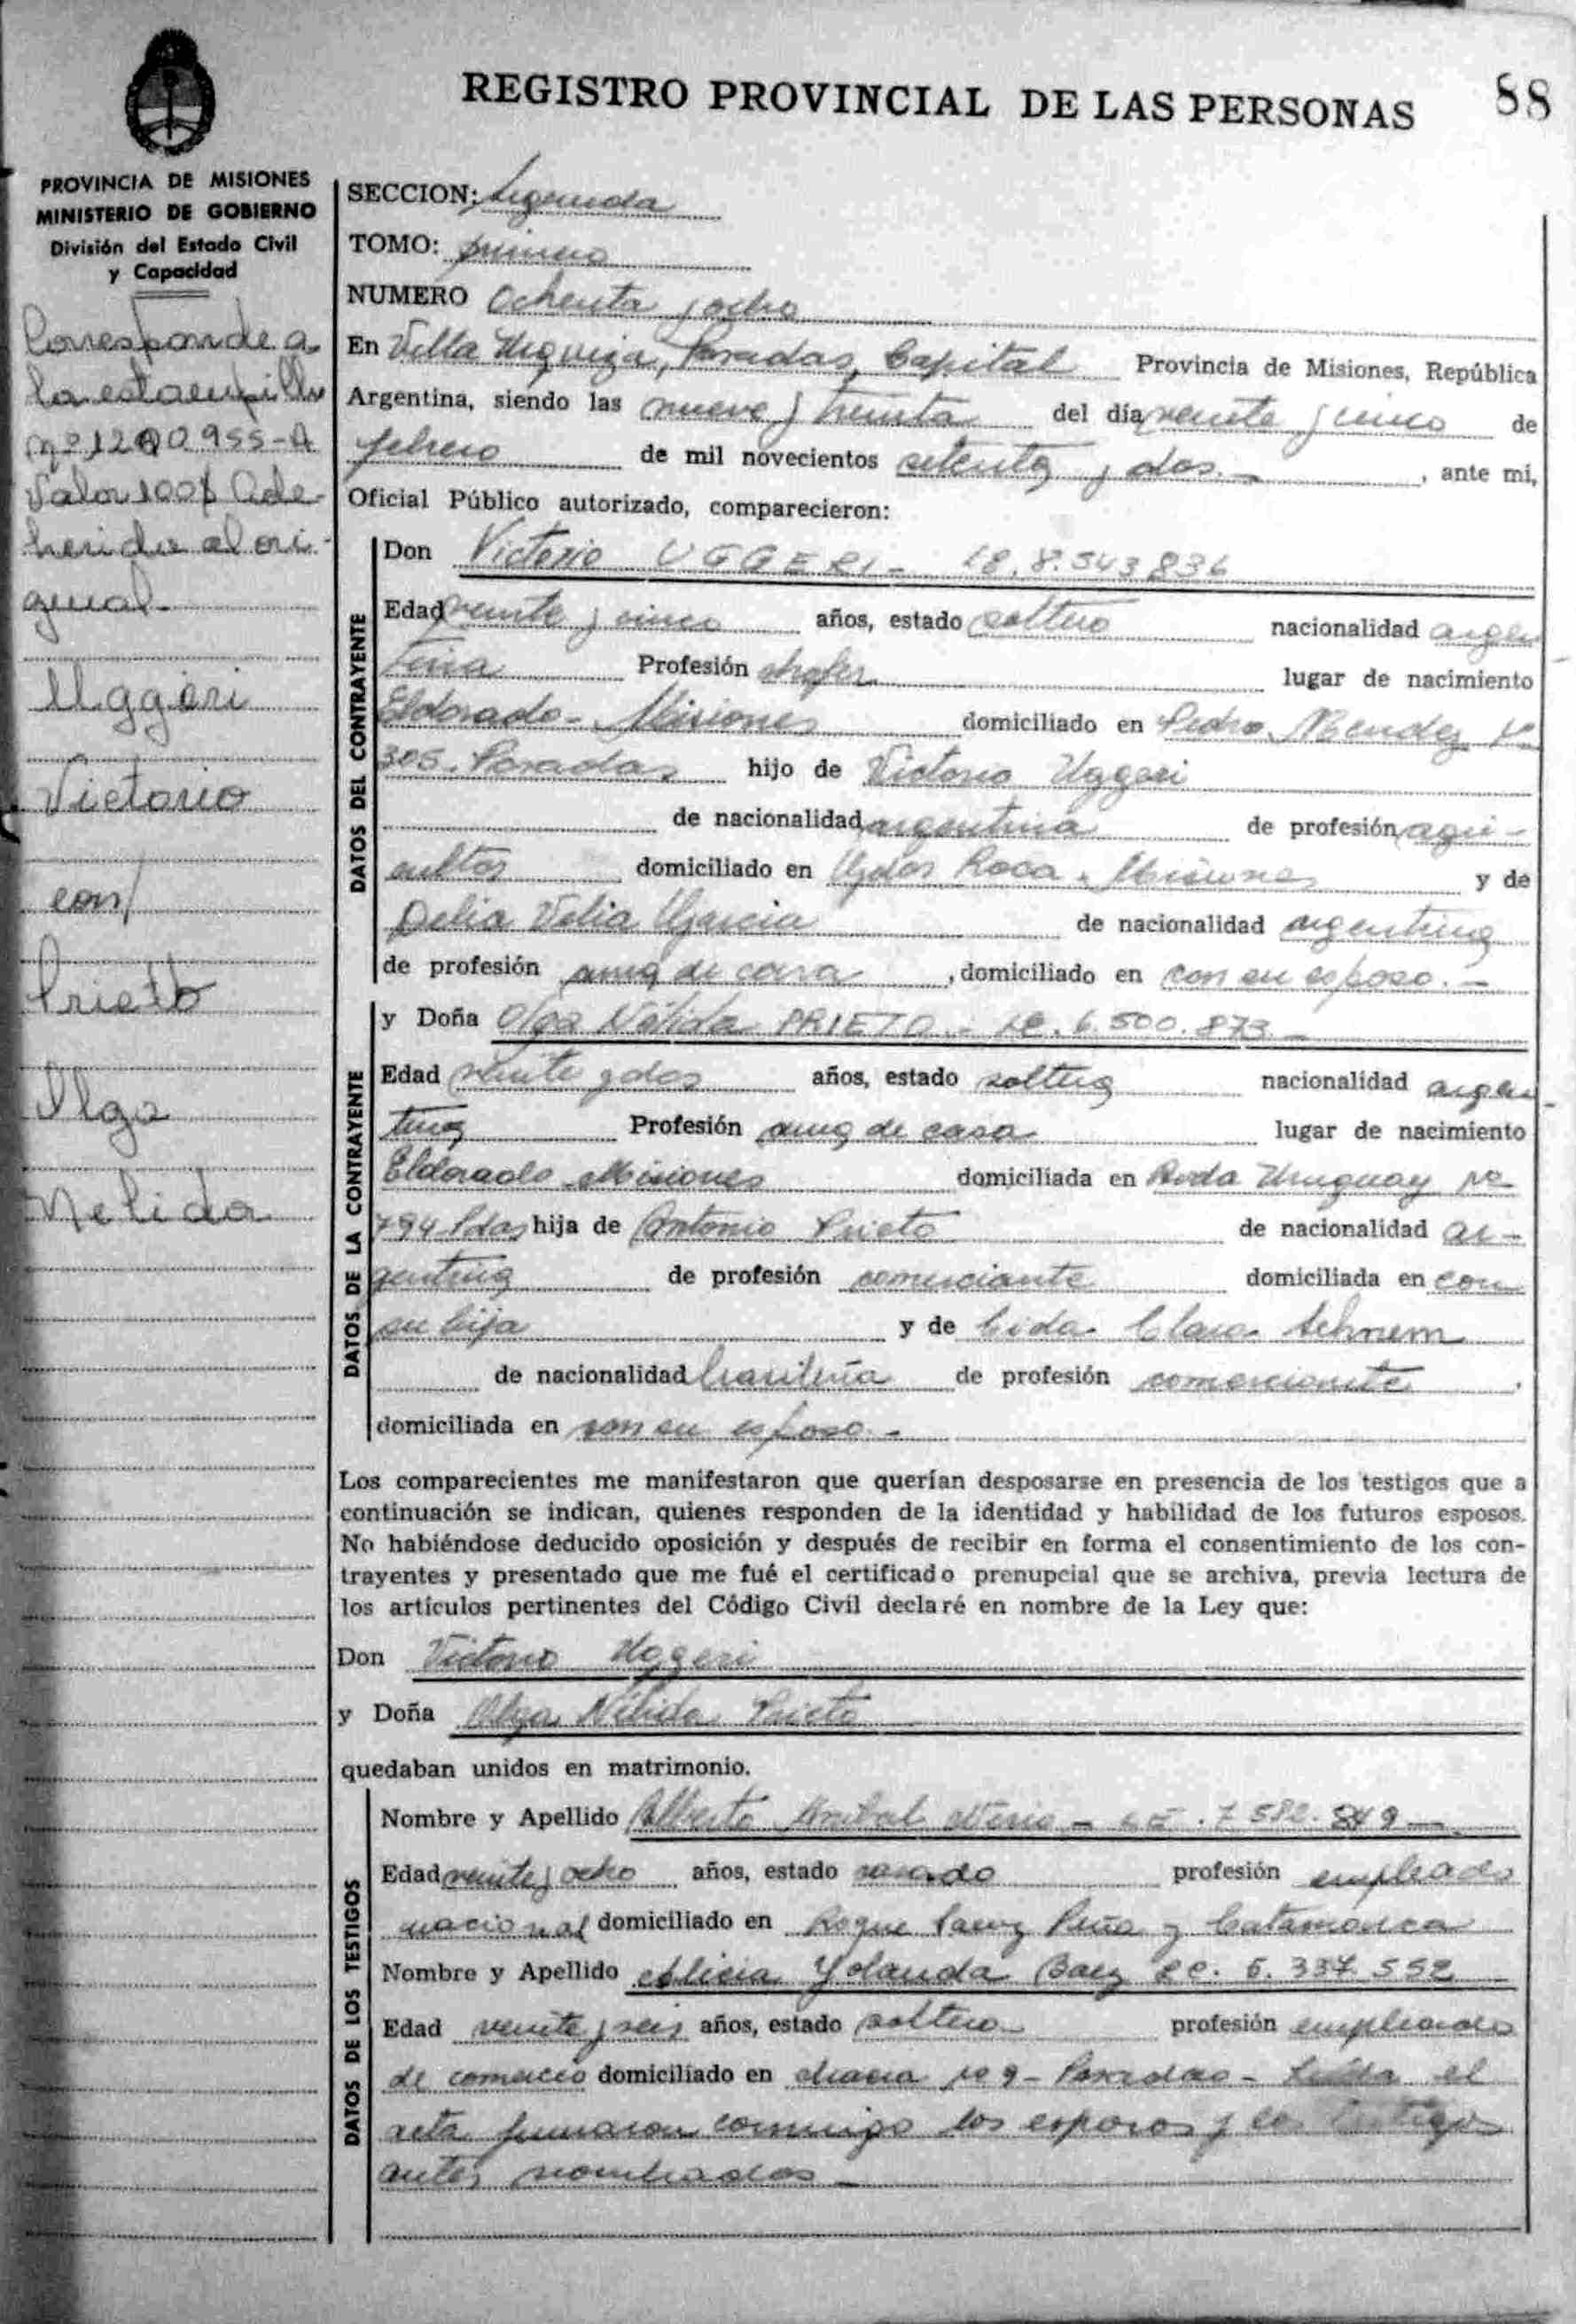 REGISTRO PROVINCIAL DE LAS PERSONAS
88
PROVINCIA DE MISIONES
MINISTERIO DE GOBIERNO
División del Estado Civil
y Capacidad
Corresponde a
la estampilla
nº 1200955-A
Valor 100$ Ade-
herida al ori-
ginal-
Uggeri
Victorio
con/
Prieto
Olga
Nelida
SECCION: segunda
TOMO: primero
NUMERO Ochenta y ocho
En Villa Urquiza, Posadas, Capital Provincia de Misiones, República
Argentina, siendo las nueve y treinta del día veinte y cinco de
febrero de mil novecientos setenta y dos.- , ante mi,
Oficial Público autorizado, comparecieron:
DATOS DEL CONTRAYENTE
Don Victorio UGGERI- 8.543836
Edad veinte y cinco años, estado soltero nacionalidad argen
tina Profesión chofer lugar de nacimiento
Eldorado- Misiones domiciliado en Pedro Mendez Nº
305. Posadas hijo de Victorio Uggeri
de nacionalidad argentina de profesión agri-
cultor domiciliado en Roca - Misiones y de
Delia Garcia de nacionalidad argentina
de profesión ama de casa , domiciliado en con su esposo.-
DATOS DE LA CONTRAYENTE
y Doña Olga Nélida PRIETO - LC. 6.500.873-
Edad veinte y dos años, estado soltera nacionalidad argen-
tina Profesión ama de casa lugar de nacimiento
Eldorado Misiones domiciliada en Uruguay Nº
794 Pdas hija de Antonio Prieto de nacionalidad ar-
gentina de profesión comerciante domiciliada en con
su hija y de Clara Schnem
de nacionalidad brasileña de profesión comerciante .
domiciliada en con su esposo.-
Los comparecientes me manifestaron que querían desposarse en presencia de los testigos que a
continuación se indican, quienes responden de la identidad y habilidad de los futuros esposos.
No habiéndose deducido oposición y después de recibir en forma el consentimiento de los con-
trayentes y presentado que me fué el certificado prenupcial que se archiva, previa lectura de
los artículos pertinentes del Código Civil declaré en nombre de la Ley que:
Don Victorio Uggeri
y Doña Olga Nélida Prieto
quedaban unidos en matrimonio.
DATOS DE LOS TESTIGOS
Nombre y Apellido Alberto Anibal - LE. 7582.849-
Edad veinte y ocho años, estado casado profesión empleado
nacional domiciliado en Roque Saenz Peña y Catamarca
Nombre y Apellido Alicia Yolanda Baez LC. 5.337.552
Edad veinte y seis años, estado soltero profesión empleado
de comercio domiciliado en chacra Nº 9- Posadas- Leida el
acta firmaron conmigo los esposos y los testigos
antes nombrados-